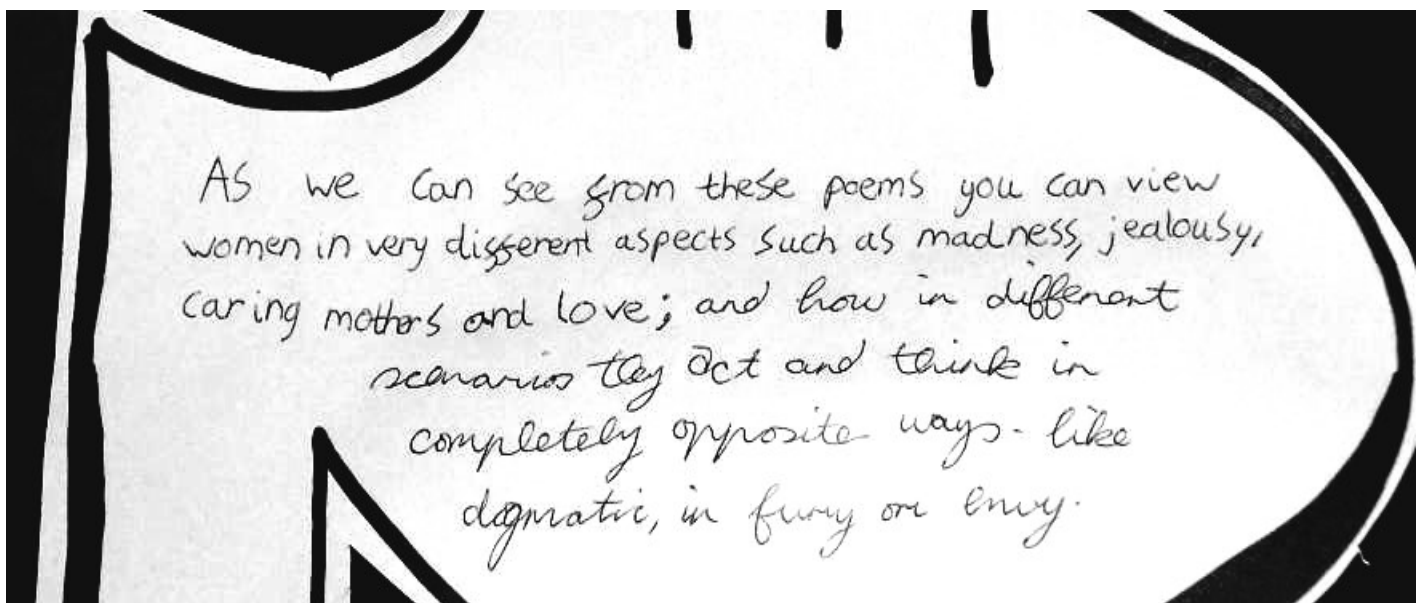 As we can see from these poems you can view
women in very different aspects such as madness, jealousy,
caring mothers and love; and how in different
scenarios they act and think in
completely opposite ways - like
dogmatic, in fury or envy.